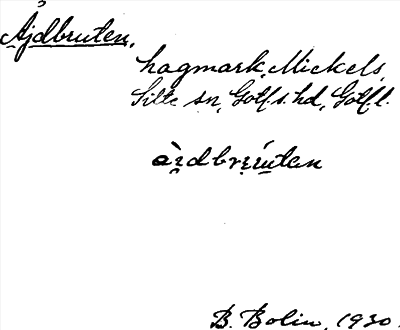 Ajdbruten,
hagmark, Mickels,
Silte sn, Gotl. s. hd, Gotl. l.
B. Bolin, 1930.